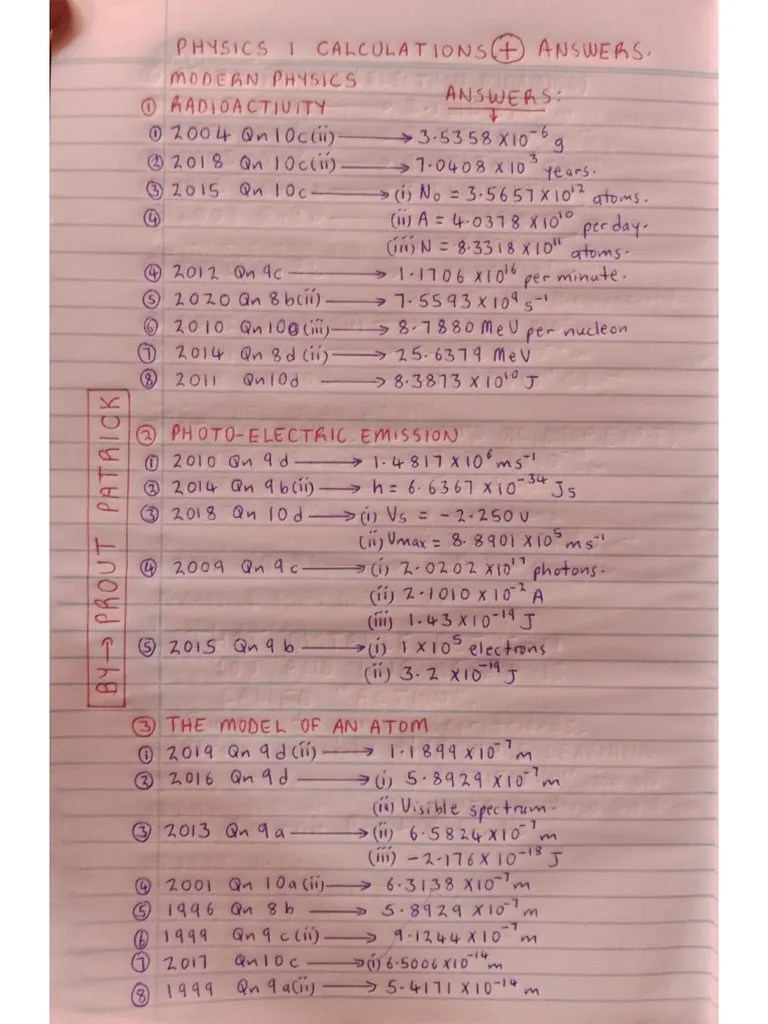 PHYSICS 1 CALCULATIONS + ANSWERS.
MODERN PHYSICS
ANSWERS:
① RADIOACTIVITY
① 2004 Qn 10c(ii) → 3.5358 X10⁻⁶ g
② 2018 Qn 10c(ii) → 7.0408 X 10³ years.
③ 2015 Qn 10c → (i) N₀ = 3.5657 X10¹² atoms.
④ (ii) A = 4.0378 X10¹⁰ per day.
(iii) N = 8.3318 X10¹¹ atoms.
④ 2012 Qn 9c → 1.1706 X10¹⁶ per minute.
⑤ 2020 Qn 8b(ii) → 7.5593 X10⁹ s⁻¹
⑥ 2010 Qn 10c(iii) → 8.7880 MeV per nucleon
⑦ 2014 Qn 8d(ii) → 25.6379 MeV
⑧ 2011 Qn10d → 8.3873 X10¹⁰ J
② PHOTO-ELECTRIC EMISSION
① 2010 Qn 9d → 1.4817 X10⁶ ms⁻¹
② 2014 Qn 9b(ii) → h = 6.6367 X10⁻³⁴ Js
③ 2018 Qn 10d → (i) Vs = -2.250V
(ii) Umax = 8.8901 X10⁵ ms⁻¹
④ 2009 Qn 9c → (i) 2.0202 X10¹⁷ photons.
(ii) 2.1010 X10⁻² A
(iii) 1.43 X10⁻¹⁹ J
⑤ 2015 Qn 9b → (i) 1 X10⁵ electrons
(ii) 3.2 X10⁻¹⁹ J
BY → PROUT PATRICK
③ THE MODEL OF AN ATOM
① 2019 Qn 9d(ii) → 1.1899 X10⁻⁷ m
② 2016 Qn 9d → (i) 5.8929 X10⁻⁷ m
(ii) Visible spectrum.
③ 2013 Qn 9a → (ii) 6.5824 X10⁻⁷ m
(iii) -2.176 X 10⁻¹⁸ J
④ 2001 Qn 10a(ii) → 6.3138 X10⁻⁷ m
⑤ 1996 Qn 8b → 5.8929 X10⁻⁷ m
⑥ 1999 Qn 9c(ii) → 9.1244 X10⁻⁷ m
⑦ 2017 Qn10c → (i) 6.5006 X10⁻¹⁴ m
⑧ 1999 Qn 9a(ii) → 5.4171 X10⁻¹⁴ m